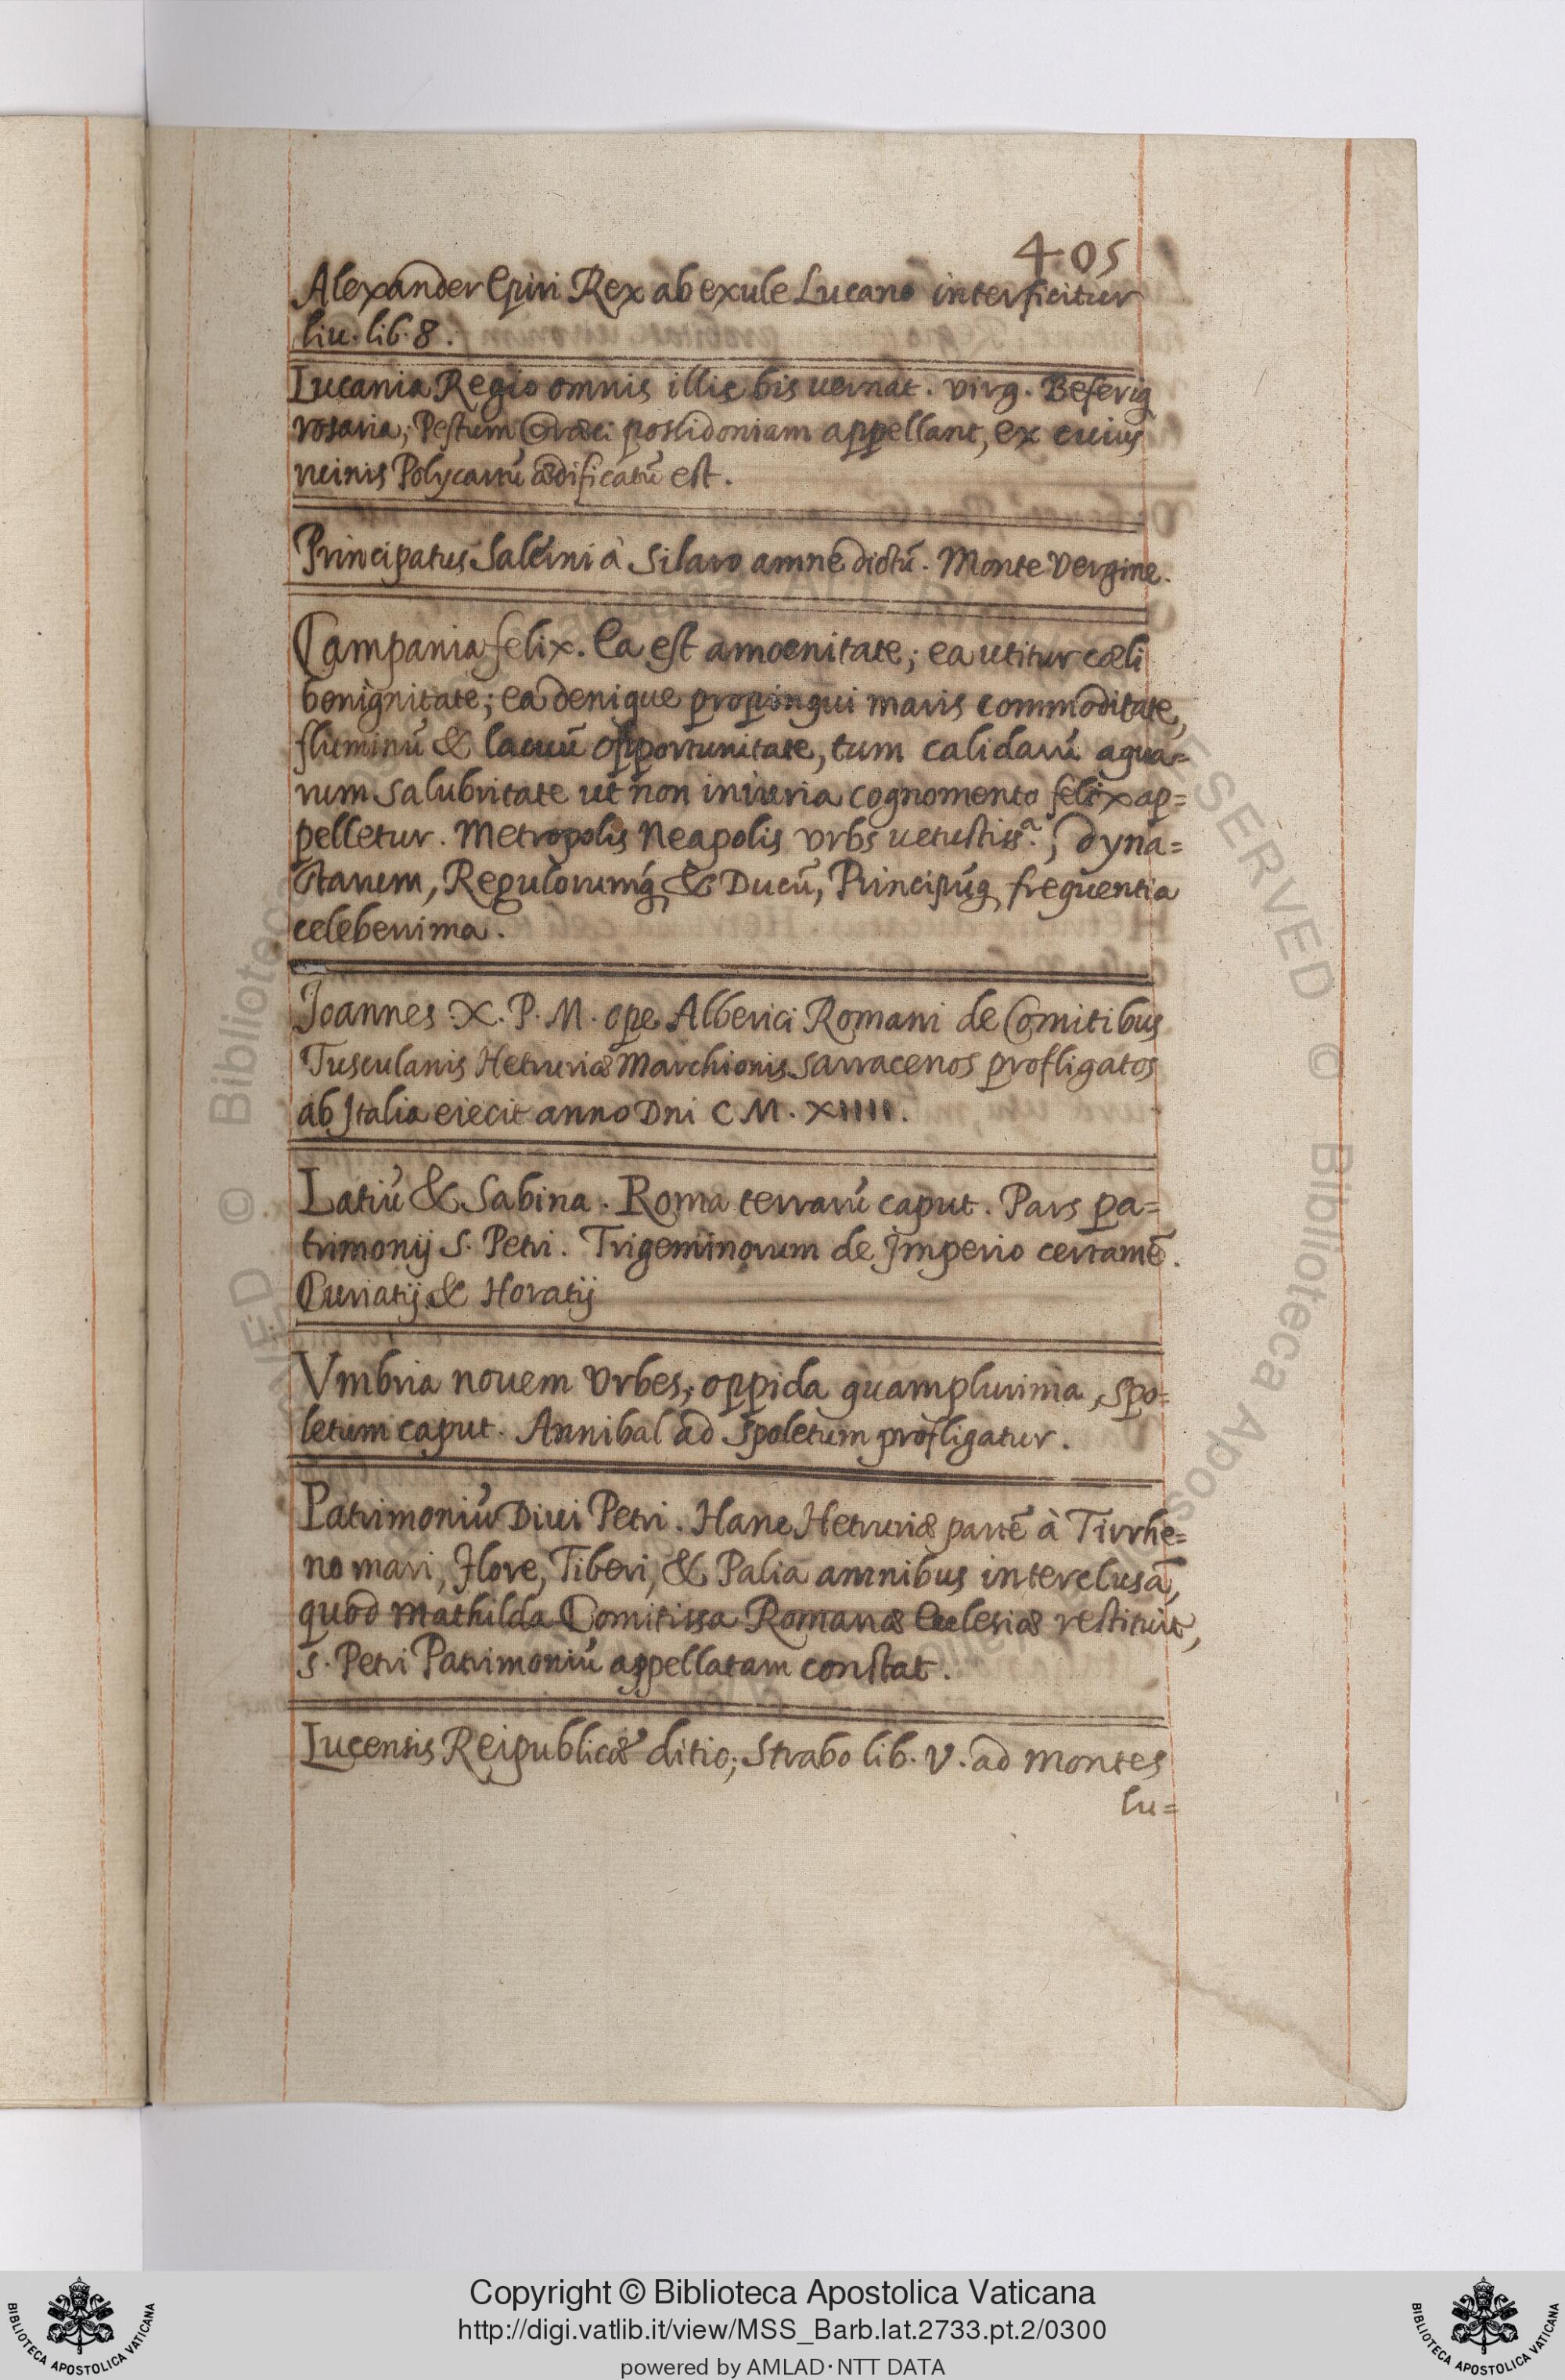 405
Alexander Epiri Rex ab exule Lucano interficitur
liu. lib. 8.
Lucania Regio omnis illic bis uernat. virg. Biferiq
rosaria; Pestum Græci possidoniam appellant, ex cuius
ruinis Polycarrū ædificatū est.
Principatus Salerni à Silaro amne dictū. Monte Vergine.
Campania felix. Ea est amoenitate; ea utitur cæli
benignitate; ea denique propinqui maris commoditate,
fluminū & lacuū opportunitate, tum calidarū aqua=
rum salubritate ut non iniuria cognomento felix ap=
pelletur. Metropolis Neapolis vrbs uetustiss.ᵃ, dyna=
starum, Regulorumq́ & Ducū, Principūq frequentia
celeberrima.
Ioannes X. P. M. ope Alberici Romani de Comitibus
Tusculanis Hetruriæ Marchionis sarracenos profligatos
ab Italia eiecit anno Dni CM. XIIII.
Latiū & Sabina. Roma terrarū caput. Pars pa=
trimonij S. Petri. Trigeminorum de Imperio certamē.
Curiatij & Horatij
Vmbria nouem vrbes, oppida quamplurima, spo=
letum caput. Annibal ad Spoletum profligatur.
Patrimoniū Diui Petri. Hanc Hetruriæ partē à Tirrhe=
no mari, Flore, Tiberi, & Palia amnibus interclusā,
quod Mathilda Comitissa Romanæ Ecclesiæ restituit,
S. Petri Patrimoniū appellatam constat.
Lucensis Reipublicæ ditio; Strabo lib. V. ad montes
lu=
© Biblioteca Apostolica
RESERVED © Biblioteca Apostolica
Copyright © Biblioteca Apostolica Vaticana
http://digi.vatlib.it/view/MSS_Barb.lat.2733.pt.2/0300
powered by AMLAD·NTT DATA
BIBLIOTECA APOSTOLICA VATICANA
BIBLIOTECA APOSTOLICA VATICANA